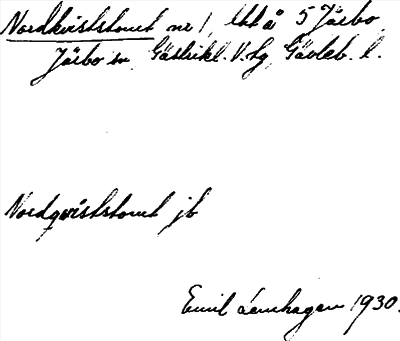 Nordkviststomt nr 1, litt å 5 Järbo
Järbo sn, Gästrikl. V. tg, Gävleb. l.
Nordqviststomt jb
Emil Lennhagen 1930.